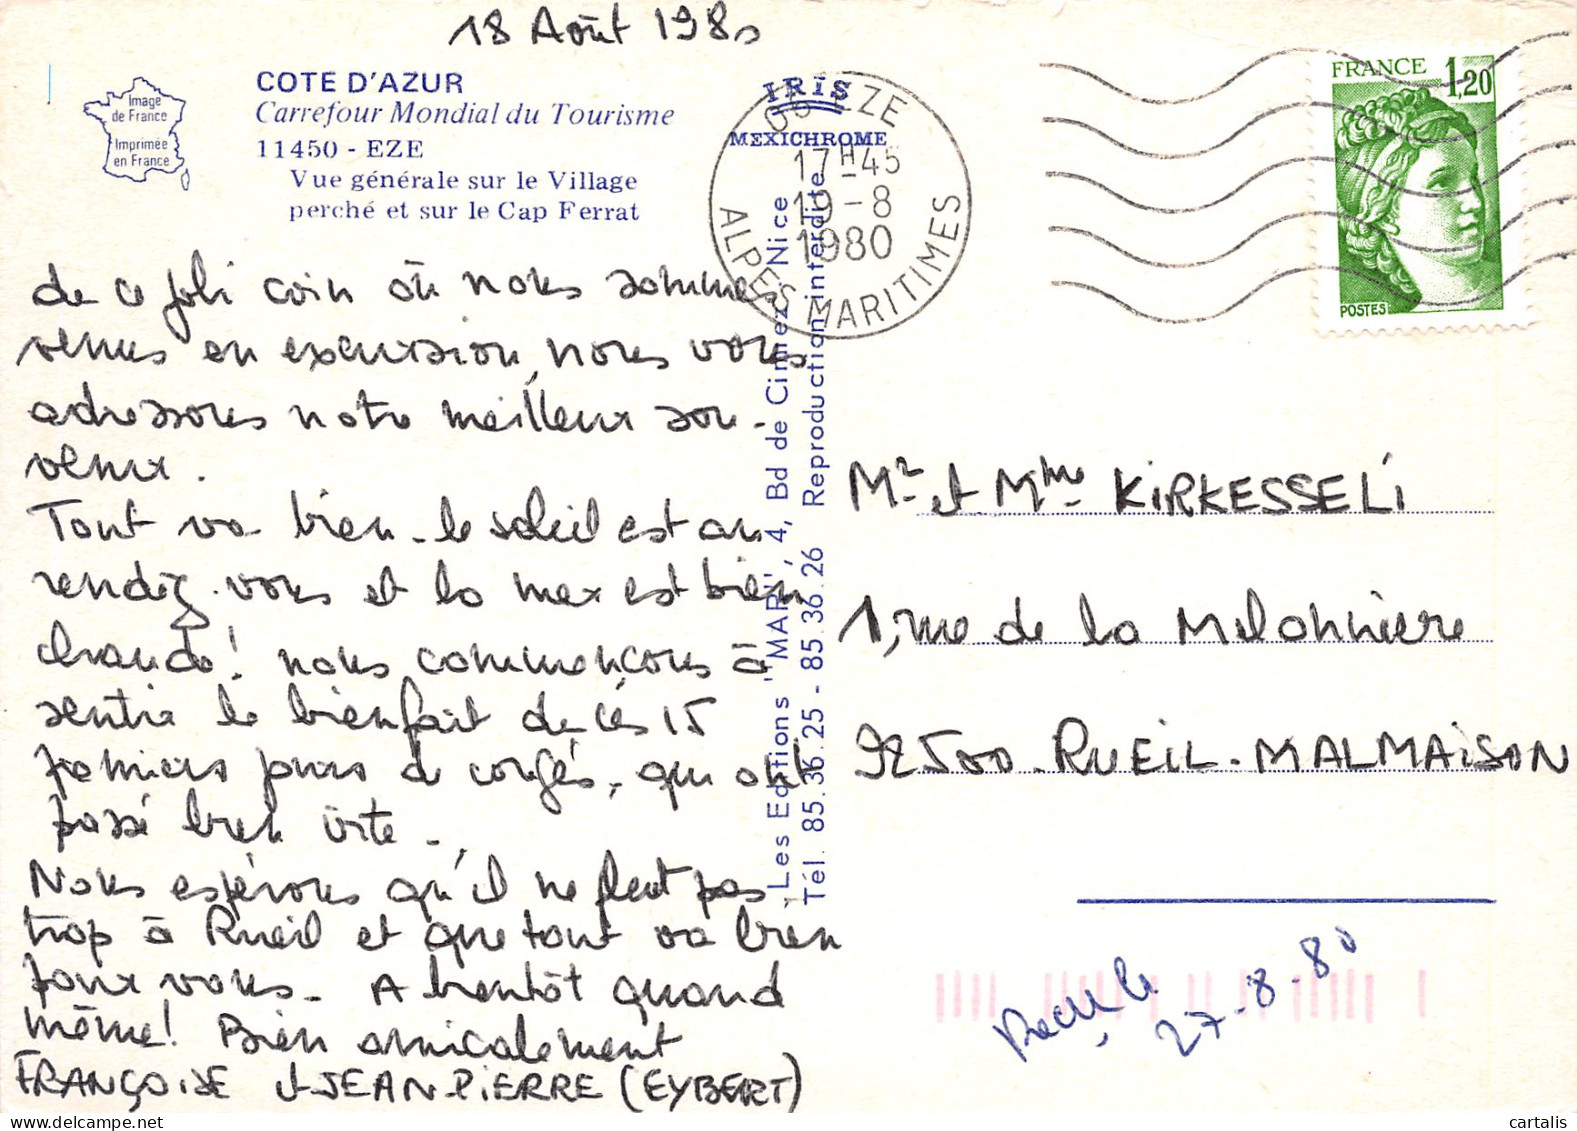 18 Août 1980
Image
de France
Imprimée
en France
COTE D'AZUR
Carrefour Mondial du Tourisme
11450 - EZE
Vue générale sur le Village
perché et sur le Cap Ferrat
IRIS
MEXICHROME
06 EZE
17H45
19-8
1980
ALPES MARITIMES
FRANCE 1,20
POSTES
de ce joli coin où nous sommes
venus en excursion, nous vous
adressons notre meilleur sou-
venir.
Tout va bien - le soleil est au
rendez-vous et la mer est bien
chaude! nous commençons à
sentir le bienfait de ces 15
premiers jours de congés, qui ont
passé bien vite.
Nous espérons qu'il ne pleut pas
trop à Rueil et que tout va bien
pour vous. A bientôt quand
même! Bien amicalement
FRANÇOISE et JEAN-PIERRE (EYBERT)
Les Editions "MAR", 4, Bd de Cimiez Nice
Tél. 85.36.25 - 85.36.26 Reproduction interdite
Mr et Mme KIRKESSELI
1, rue de la Melonnière
92500 - RUEIL-MALMAISON
Reçu le
27-8-80
cartalis